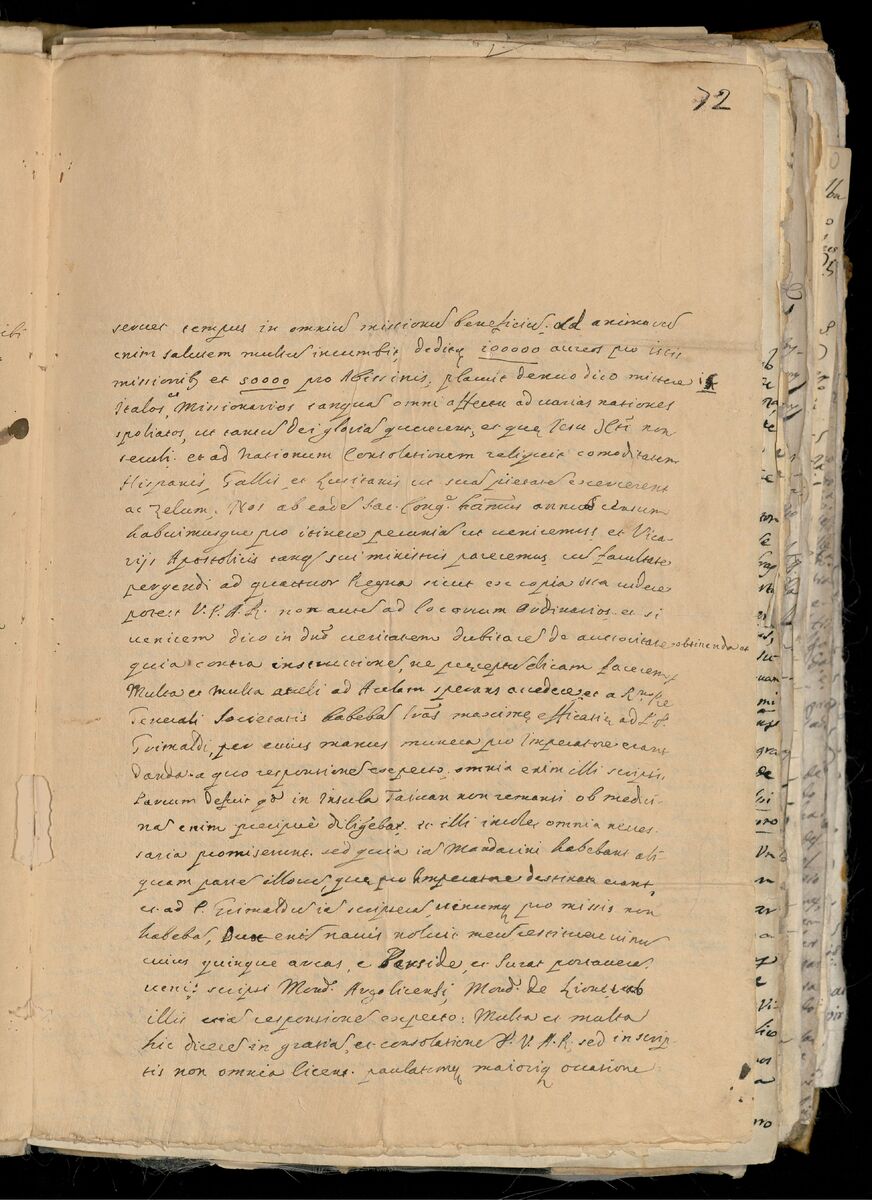 72
seruet tempus in omniũ missionũ beneficiũ. ad animarũ
enim salutem multũ incumbit, deditq 100000 aureos pro istis
missionib et 50000 pro Abissinis, placuit denuo dico mittere
Italos, Missionarios tanquã omni affectu ad varias nationes
spoliatos, ut tantũ dei gloriã quererent, et que Iesu Xti non
seculi. et ad Nationum Consolationem reliquit comoditatem
Hispanis, Gallis, et Lusitanis ut suã pietatẽ exercerent
ac Zelum. Nos ab eadẽ Sac. Cong.e annuũ censum
habuimusque pro itinere pecuniã ut veniremus, et Vica-
rijs Apostolicis tanq sui ministris pareremus, cũ facultate
pergendi ad quattuor Regna sicut ex copia ista videre
potest V.P.A.R. non autẽ ad locorum Ordinarios, et si
venirem dico in dno veritatem dubitarẽ de auctoritate obtinenda et
quia contra instructionẽ, ne preceptũ dicam facerem
Multa et multa attuli ad Aulam sperans accedere et a R.mo Pre
Generali Societatis habebã lras maxime efficatiæ ad P.
Grimaldi, per cuius manus munera pro Imperatore erant
danda. a quo responsionẽ expecto. omnia enim illi scripsi.
Parum defuit qd in Insula Taiuan non remansi ob medici-
nas enim precipuè diligebar. et illi incolæ omnia neces-
saria promiserunt. sed quia iã Mandarini habebant ali-
quam partẽ illorũ, que pro Imperatore destinata erant,
et ad P. Grimaldũ iã scripserã, vinumq pro missis non
habebã, Dux enim navis noluit meũ restituere vinũ
cuius quinque arcas, e Perside, et Surat portaverã
veni. scripsi Mons. Argolicensi, Mons. de Lionne, ab
illis etiã responsionẽ expecto. Multa et multa
hic dicerẽ in gratiã, et consolationẽ P.V.A.R. sed in scrip-
tis non omnia licent. paulatimq maioriq occasione